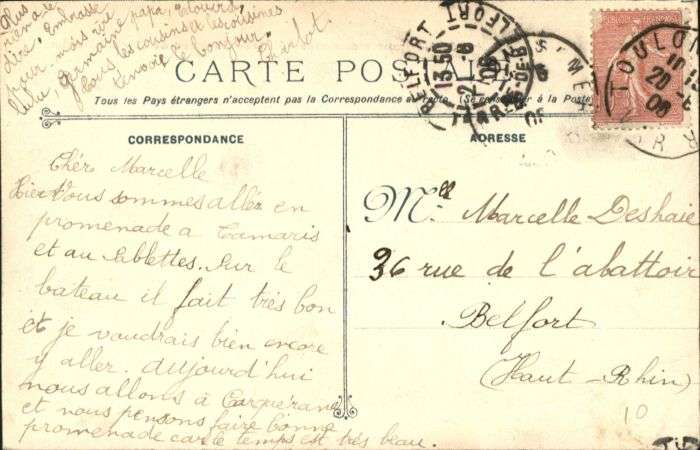 Plus
rien a te
dire, Embrasse
pour mois rue papa, Edouard,
tate Germaine
Tous les cousins et les cousines
t'envoie le bonjour
CARTE POSTALE
Tous les Pays étrangers n'acceptent pas la Correspondance au recto. (Se renseigner à la Poste)
BELFORT
13.50
12-6
06
BELFORT
TERRE DE
TOULON
11
20
06
VAR
CORRESPONDANCE
Chére Marcelle
Hier Nous sommes allez en
promenade a Tamaris
et au Sablettes. Sur le
bateau il fait très bon
et je vaudrais bien encore
y aller. aujourd'hui
nous allons à Carquerane
et nous pensons faire bonne
promenade car le temps est très beau.
ADRESSE
Melle Marcelle Deshaie
36 rue de l'abattoir
Belfort
(Haut-Rhin)
10